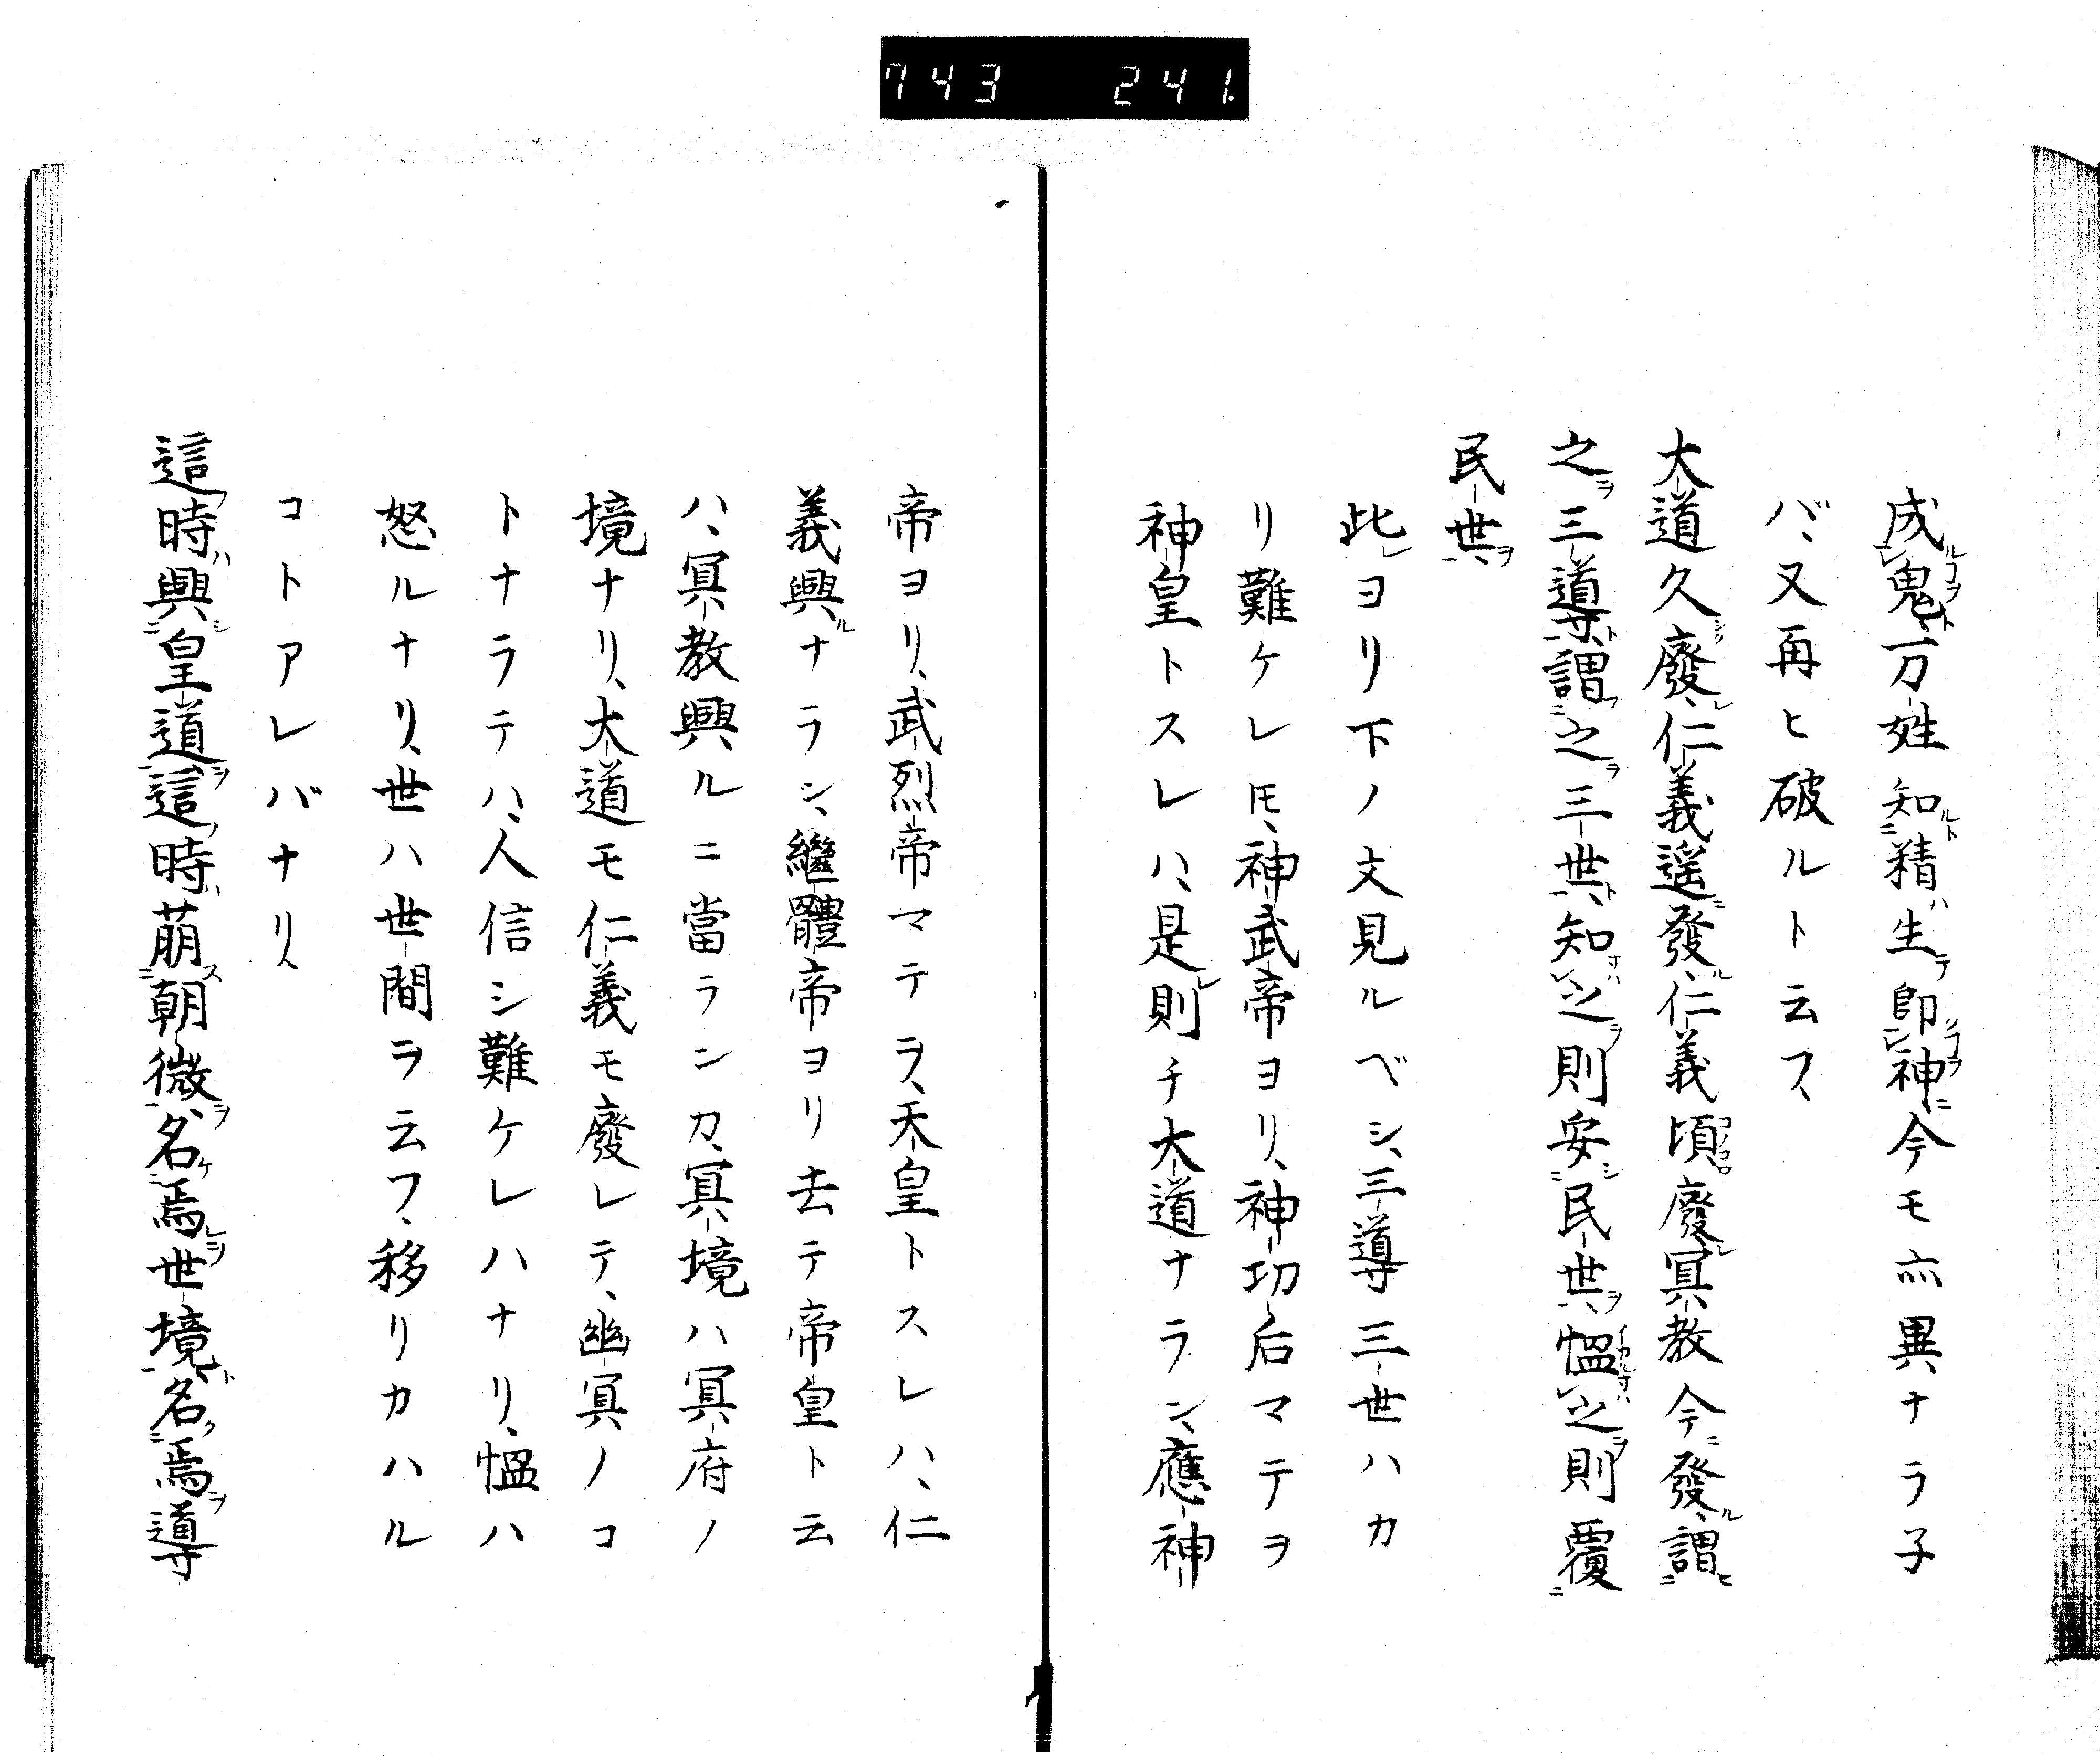 743 241.
成鬼万姓知精生卽神今モ亦異ナラ子
バ、又再ヒ破ルト云フ、
大道久廢、仁義遥發、仁義頃廢冥教今發、謂
之三導、謂之三世、知之則安民世、慍之則覆
民世、
此ヨリ下ノ文見ルベシ、三導三世ハカ
リ難ケレ𪜈、神武帝ヨリ、神功后マテヲ
神皇トスレハ、是則チ大道ナラン、應神
帝ヨリ、武烈帝マテヲ、天皇トスレハ、仁
義興ナラシ、繼體帝ヨリ去テ帝皇ト云
ハ、冥教興ルニ當ランカ、冥境ハ冥府ノ
境ナリ、大道モ仁義モ廢レテ、幽冥ノコ
トナラテハ、人信シ難ケレハナリ、慍ハ
怒ルナリ、世ハ世間ヲ云フ、移リカハル
コトアレバナリ、
這時興皇道、這時萠朝微、名焉世境、名焉導